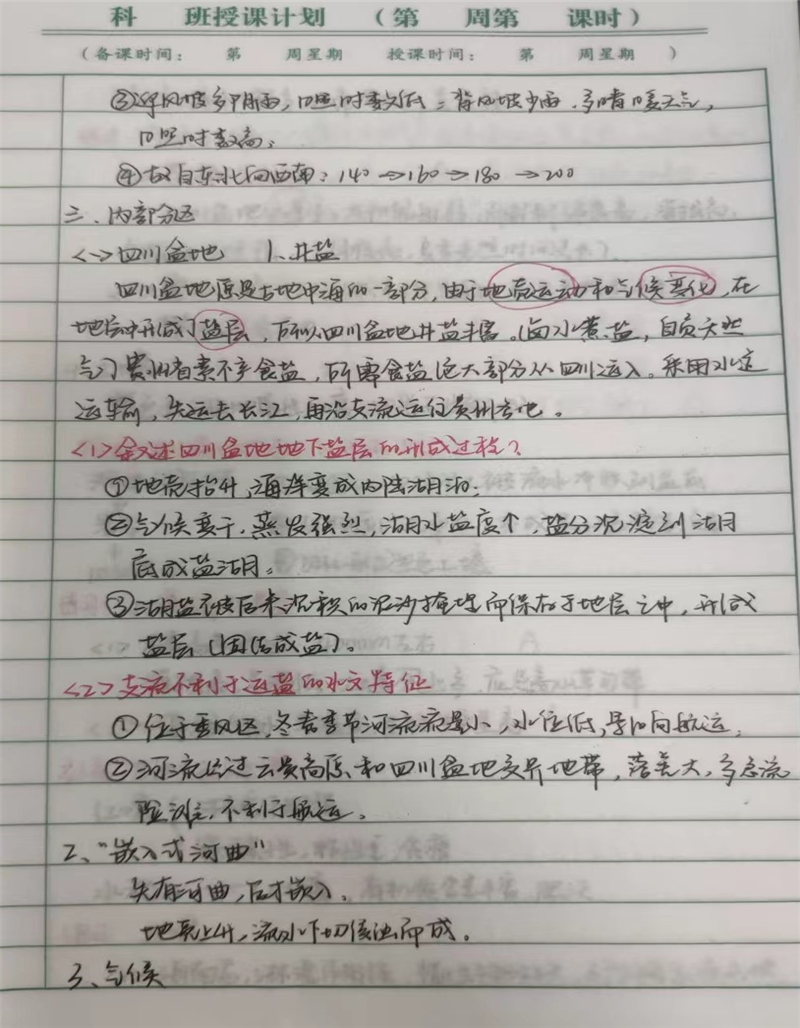 科 班授课计划 （第 周第 课时）
（备课时间： 第 周星期 授课时间： 第 周星期 ）
③迎风坡多阴雨，日照时数低；背风坡少雨，多晴暖天气，
日照时数高；
④故自东北向西南：140→160→180→200
三、内部分区
<一>四川盆地 1、井盐
四川盆地原是古地中海的一部分，由于地壳运动和气候变化，在
地层中形成了盐层，所以四川盆地井盐丰富。（卤水煮盐，自贡天然
气）贵州省素不产食盐，所需食盐绝大部分从四川运入。采用水运
运输，先运去长江，再沿支流运往贵州各地。
<1>叙述四川盆地地下盐层的形成过程？
①地壳抬升，海洋变成内陆湖泊；
②气候变干，蒸发强烈，湖水盐度个，盐分沉淀到湖
底成盐湖。
③湖盐被后来沉积的泥沙掩埋而保存于地层之中，形成
盐层（固结成盐）。
<2>支流不利于运盐的水文特征
①位于季风区，冬春季节河流流量小，水位低，影响航运，
②河流流过云贵高原和四川盆地交界地带，落差大，多急流
险滩，不利于航运。
2、"嵌入式河曲"
先有河曲，后才嵌入。
地壳上升，流水下切侵蚀而成。
3、气候